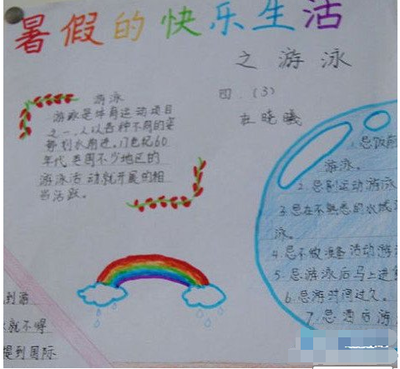 暑假的快乐生活
之游泳
四.(3)
晓曦
游泳
游泳是体育运动项目
之一,人以各种不同的姿
势划水前进。17世纪60
年代英国不少地区的
游泳活动就开展的相
当活跃。
1.忌饭后
游泳。
2.忌剧运动游泳
3.忌在不熟悉的水域游
泳。
4.忌不做准备活动游泳
5.忌游泳后马上进食
6.忌游时间过久。
7.忌酒后游
到游
就不得
提到国际